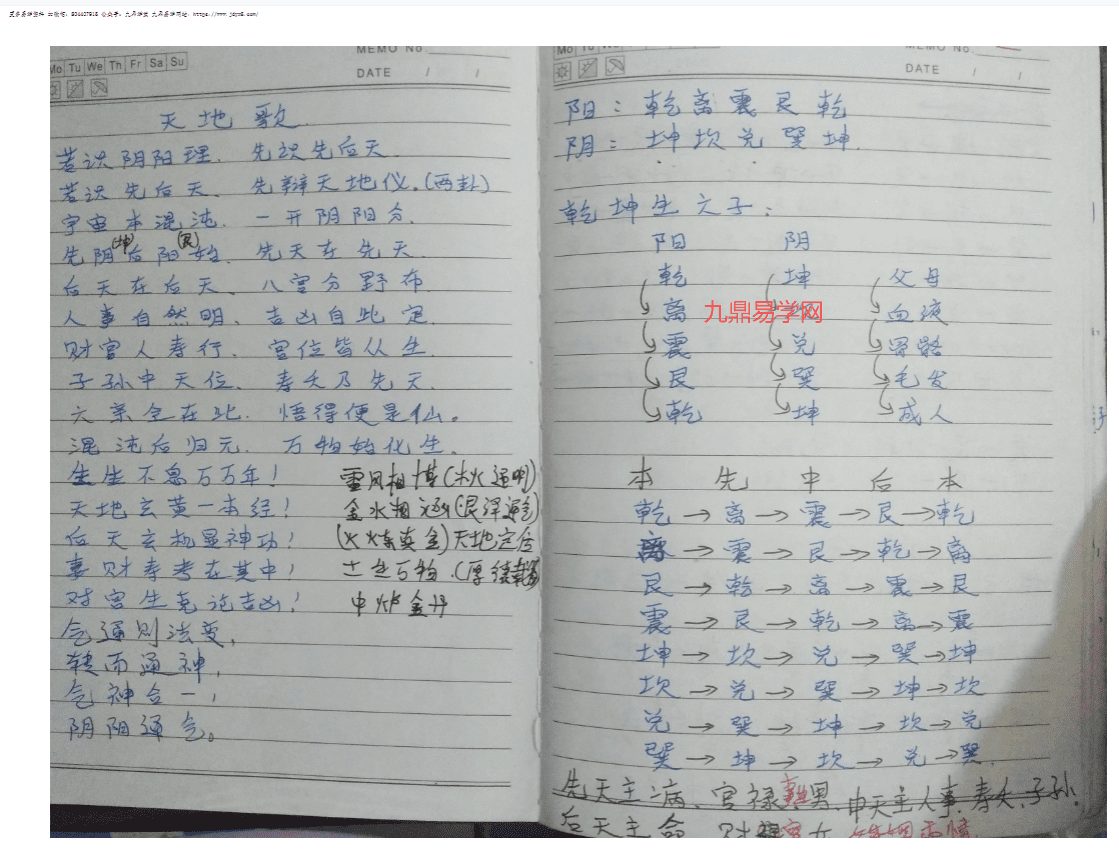 Mo Tu We Th Fr Sa Su
MEMO No.
DATE / /
天地歌
若识阴阳理、先识先后天
若识先后天、先辩天地仪.(两卦)
宇宙本混沌、一开阴阳分.
先阴(坤)后阳(艮)始、先天在先天.
后天在后天、八宫分野布
人事自然明、吉凶自此定.
财官人寿行、宫位皆从生.
子孙中天位、寿夭乃先天.
六亲全在此、悟得便是仙。
混沌后归元、万物始化生.
生生不息万万年! 雷风相博(木火通明)
天地玄黄一本经! 金水相涵
后天玄机显神功! (火炼真金)天地定后
妻财寿考在其中! 土生万物.(厚德载物)
对宫生克论吉凶! 中炉金丹
气通则法变,
转而通神,
气神合一,
阴阳通气。
Mo Tu We
MEMO No.
DATE / /
阳:乾离震艮乾
阴:坤坎兑巽坤.
乾坤生六子:
阳 阴
乾 坤 父母
离 血液
九鼎易学网
震 兑 骨骼
艮 巽 毛发
乾 坤 成人
本 先 中 后 本
乾→离→震→艮→乾
离→震→艮→乾→离
艮→乾→离→震→艮
震→艮→乾→离→震
坤→坎→兑→巽→坤
坎→兑→巽→坤→坎
兑→巽→坤→坎→兑
巽→坤→坎→兑→巽.
先天主病、官禄、男、中天主人事、寿夭、子孙.
后天主命